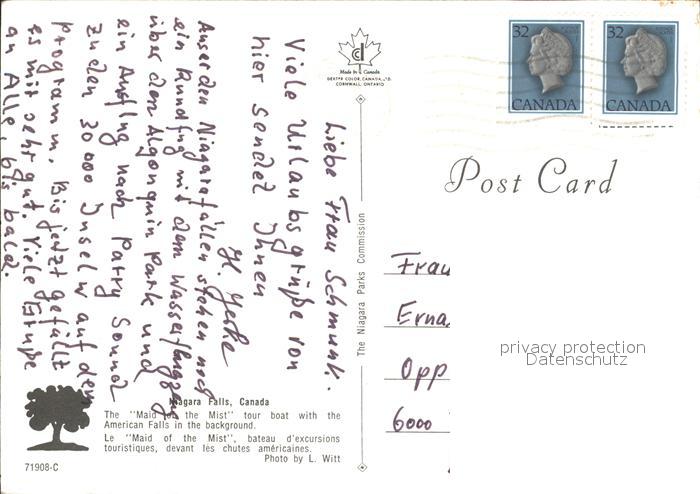 Liebe Frau Schmunk.
Viele Urlaubsgrüße von
hier sendet Ihnen
H. Jeske
Außer den Niagarafällen stehen noch
ein Rundflug mit dem Wasserflugzeug
über dem Algonquin Park und
ein Ausflug nach Parry Sound
zu den 30 000 Inseln auf dem
Programm. Bis jetzt gefällt
es mir sehr gut. Viele Grüße
an Alle, bis bald
Made in Canada
DEXTER COLOR, CANADA, LTD.
CORNWALL, ONTARIO
32
CANADA
32
CANADA
Post Card
The Niagara Parks Commission
Frau
Erna
Opp
6000
privacy protection
Datenschutz
Niagara Falls, Canada
The "Maid of the Mist" tour boat with the
American Falls in the background.
Le "Maid of the Mist", bateau d'excursions
touristiques, devant les chutes américaines.
Photo by L. Witt
71908-C